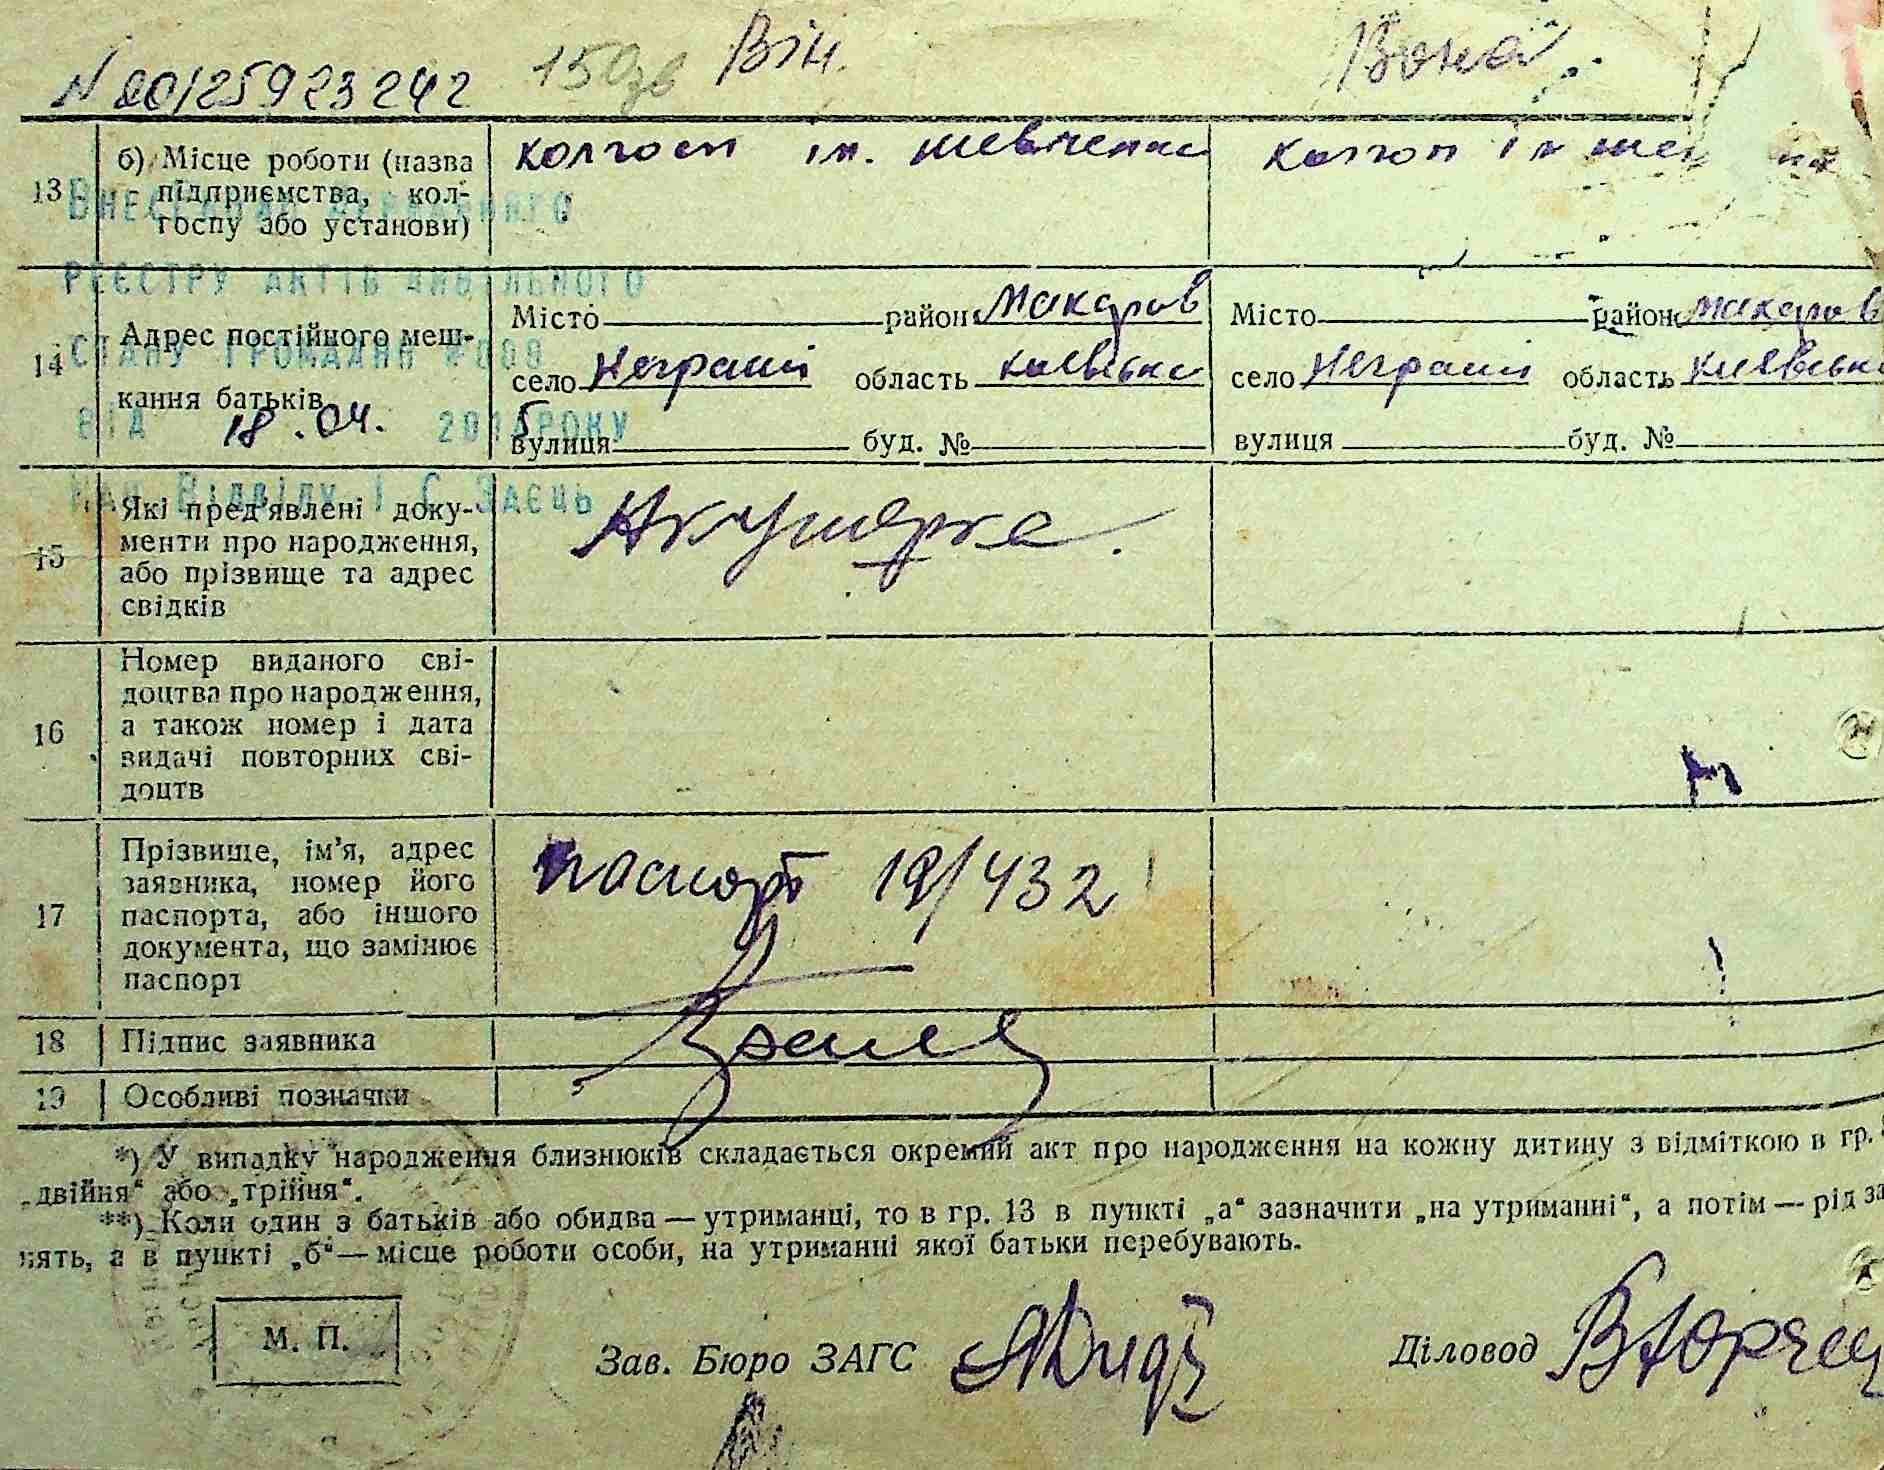 N 00125923242 Він. Вона.
13 б) Місце роботи (назва підприємства, кол-
госпу або установи)
колгосп ім. шевченка
колгосп ім
Внесено до Державного
реєстру актів цивільного
стану громадян #008
від 18.04. 2015 року
Нач Відділу І С Заєць
14 Адрес постійного меш-
кання батьків
Місто район Макарів
село Неграші область Київська
вулиця буд. №
Місто район Макарів
село Неграші область Київська
вулиця буд. №
15 Які пред'явлені доку-
менти про народження,
або прізвище та адрес
свідків
Акушерка.
16 Номер виданого сві-
доцтва про народження,
а також номер і дата
видачі повторних сві-
доцтв
17 Прізвище, ім'я, адрес
заявника, номер його
паспорта, або іншого
документа, що замінює
паспорт
паспорт 19/432
18 Підпис заявника
19 Особливі позначки
*) У випадку народження близнюків складається окремий акт про народження на кожну дитину з відміткою в гр.
„двійня“ або „трійня“.
**) Коли один з батьків або обидва — утриманці, то в гр. 13 в пункті „а“ зазначити „на утриманні“, а потім — рід за
нять, а в пункті „б“ — місце роботи особи, на утриманні якої батьки перебувають.
М. П.
Зав. Бюро ЗАГС
Діловод